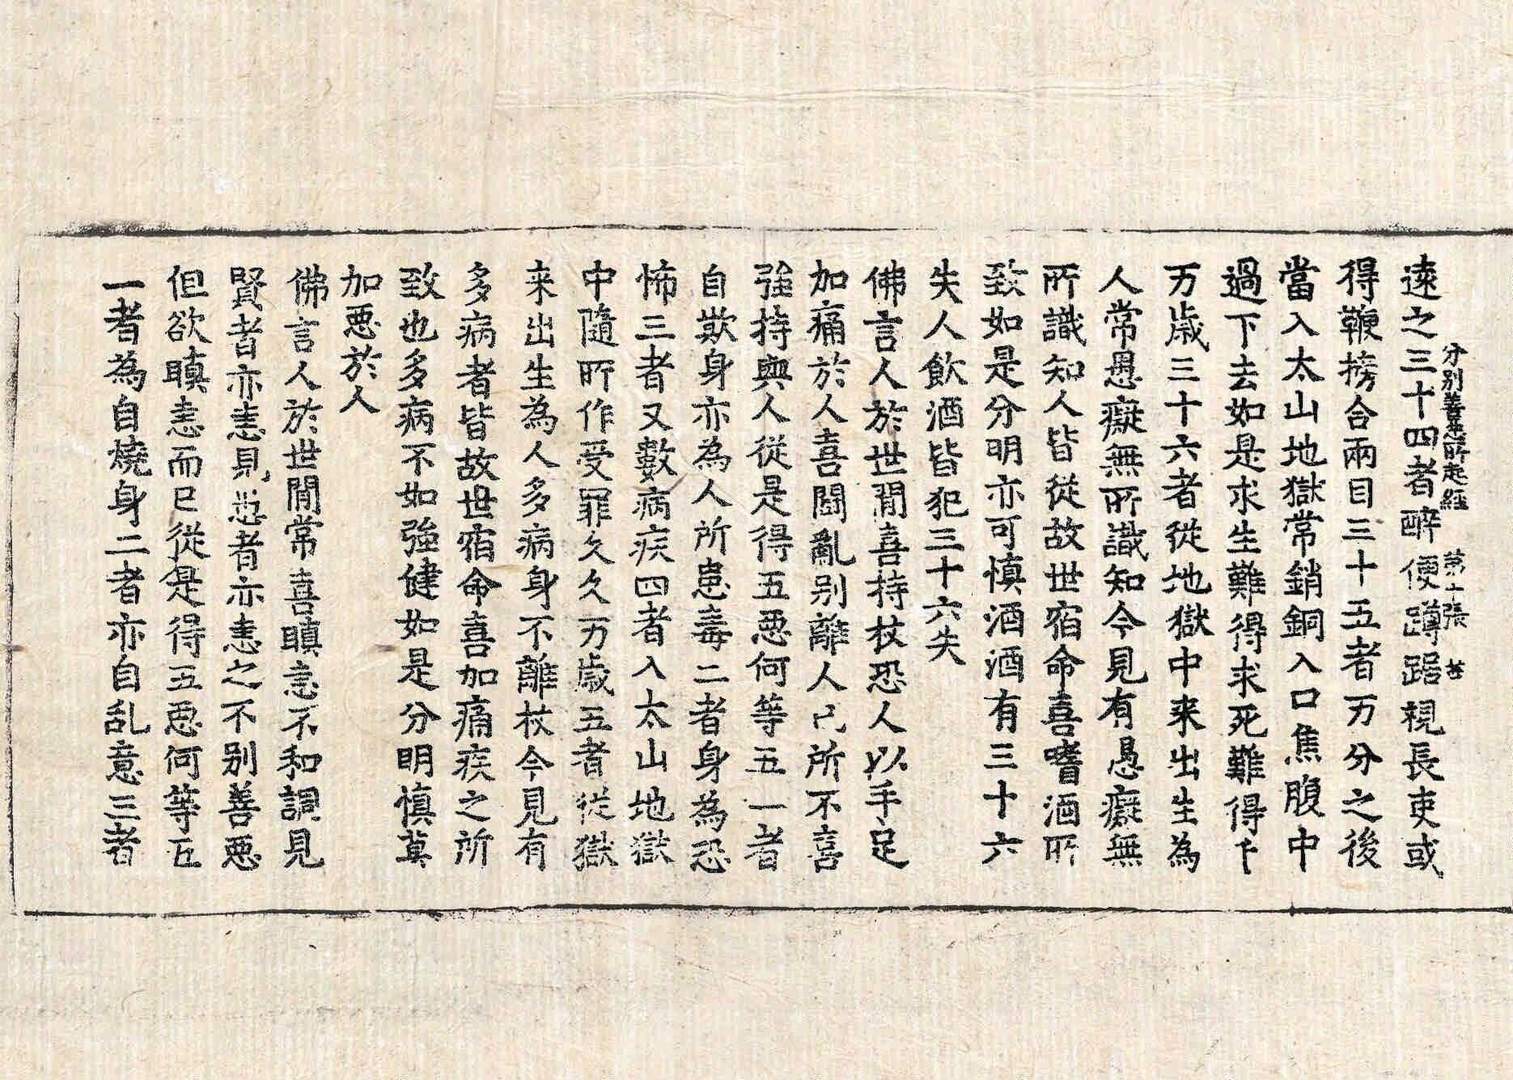 遠之三十四者醉便蹲踞視長吏或
分別善惡所起經 第十張 甚
得鞭搒合兩目三十五者万分之後
當入太山地獄常銷銅入口焦腹中
過下去如是求生難得求死難得千
万歲三十六者從地獄中来出生為
人常愚癡無所識知今見有愚癡無
所識知人皆從故世宿命喜嗜酒所
致如是分明亦可慎酒酒有三十六
失人飲酒皆犯三十六失
佛言人於世間喜持杖恐人以手足
加痛於人喜鬪亂别離人己所不喜
強持與人從是得五惡何等五一者
自欺身亦為人所患毒二者身為恐
怖三者又數病疾四者入太山地獄
中隨所作受罪久久万歲五者從獄
来出生為人多病身不離杖今見有
多病者皆故世宿命喜加痛疾之所
致也多病不如強健如是分明慎莫
加惡於人
佛言人於世間常喜瞋恚不和調見
賢者亦恚見愆者亦恚之不別善惡
但欲瞋恚而已從是得五惡何等五
一者為自燒身二者亦自乱意三者